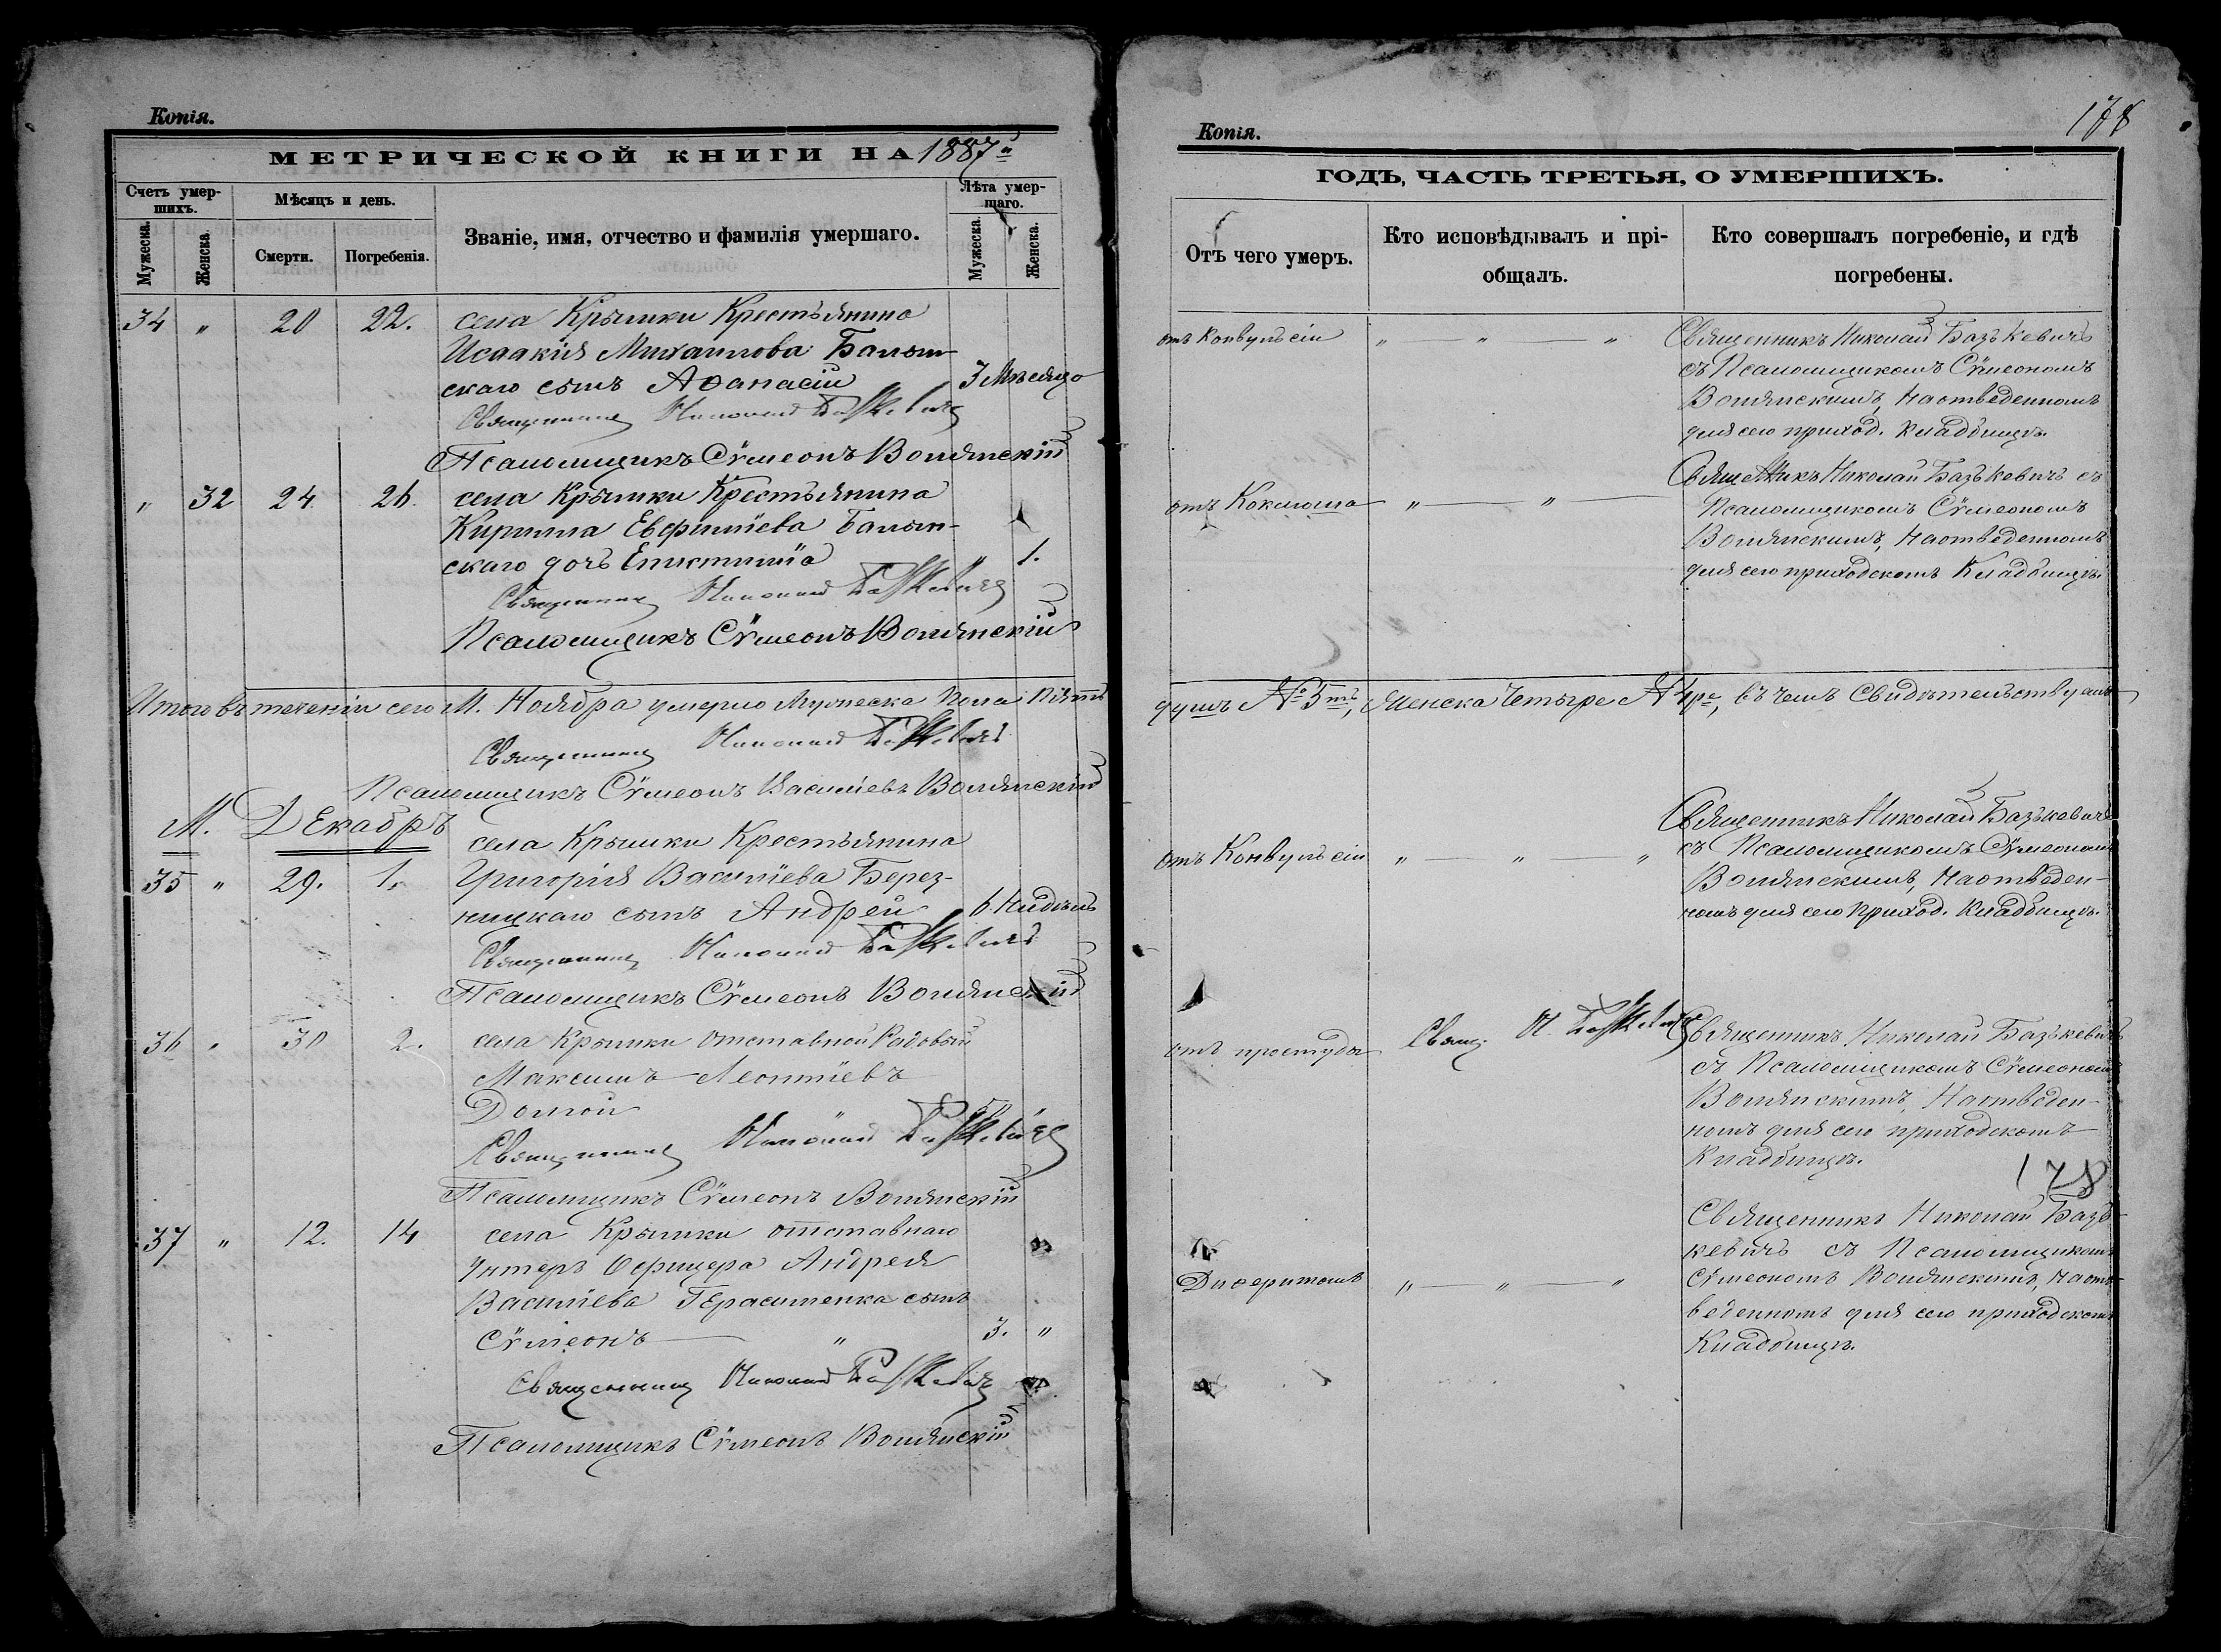 Копія.
МЕТРИЧЕСКОЙ КНИГИ НА 1887й
Счетъ умер-
шихъ.
Мѣсяцъ и день.
Званіе, имя, отчество и фамилія умершаго.
Лѣта умер-
шаго.
Мужеска.
Женска.
Смерти.
Погребенія.
Мужеска.
Женска.
34 " 20 22. села Крымки Крестьянина
Исаакія Михаилова
скаго сынъ Аѳанасій 3 Мѣсяцо
Священникъ Николай Базкевичъ
Псаломщикъ Сѵмеонъ Волянскій
" 32 24. 26. села Крымки Крестьянина
Кирилла Евфиміева
скаго дочь Епистимія " 1.
Священникъ Николай Базкевичъ
Псаломщикъ Сѵмеонъ Волянскій
Итого въ теченіи сего М. Ноября умерло Мужеска Пола Пять
Священникъ Николай Базкевичъ
Псаломщикъ Сѵмеонъ Василіевъ Волянскій
М. Декабрь
села Крымки Крестьянина
35 " 29. 1. Григорія Василіева Берез-
ницкаго сынъ Андрей 6 Нидѣль
Священникъ Николай Базкевичъ
Псаломщикъ Сѵмеонъ Волянскій
36 " 30 2. села Крымки Отставной Рядовый
Максимъ Леонтіевъ
Долгой
Священникъ Николай Базкевичъ
Псаломщикъ Сѵмеонъ Волянскій
37 " 12. 14 села Крымки отставнаго
Унтеръ Офицера Андрея
Василіева Герасименка сынъ
Сѵмеонъ " 3. "
Священникъ Николай Базкевичъ
Псаломщикъ Сѵмеонъ Волянскій
Копія.
178
ГОДЪ, ЧАСТЬ ТРЕТЬЯ, О УМЕРШИХЪ.
Отъ чего умеръ.
Кто исповѣдывалъ и прі-
общалъ.
Кто совершалъ погребеніе, и гдѣ
погребены.
отъ Конвульсіи " " " Священникъ Николай Базъкевичъ
съ Псаломщикомъ Сѵмеономъ
Волянскимъ, На отведенномъ
для сего приход. Кладбищѣ.
отъ Коклюша " " Священникъ Николай Базъкевичъ съ
Псаломщикомъ Сѵмеономъ
Волянскимъ, На отведенномъ
для сего приходскомъ Кладбищѣ.
душъ № 5ть, Женска Четыре № 4ре, въ чемъ Свидѣтельствуемъ
отъ Конвульсіи " " " Священникъ Николай Базъкевичъ
съ Псаломщикомъ Сѵмеономъ
Волянскимъ, На отведен-
номъ для сего приход. Кладбищѣ.
отъ простуды Свящ. Н. Базкевичъ Священникъ Николай Базъкевичъ
съ Псаломщикомъ Сѵмеономъ
Волянскимъ, На отведен-
номъ для сего приходскомъ
Кладбищѣ.
178
Священникъ Николай Базъ-
кевичъ съ Псаломщикомъ
Дисеритомъ " " " Сѵмеономъ Волянскимъ, На от-
веденномъ для сего приходскомъ
Кладбищѣ.